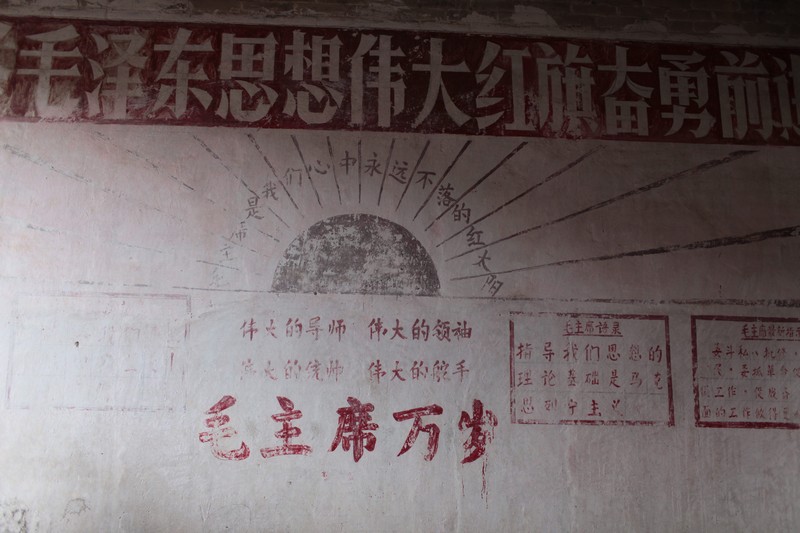 毛泽东思想伟大红旗奋勇前进
毛主席是我们心中永远不落的红太阳
伟大的导师 伟大的领袖
伟大的统帅 伟大的舵手
毛主席万岁
毛主席语录
指导我们思想的
理论基础是马克
思列宁主义
毛主席最新指示
要斗私，批修